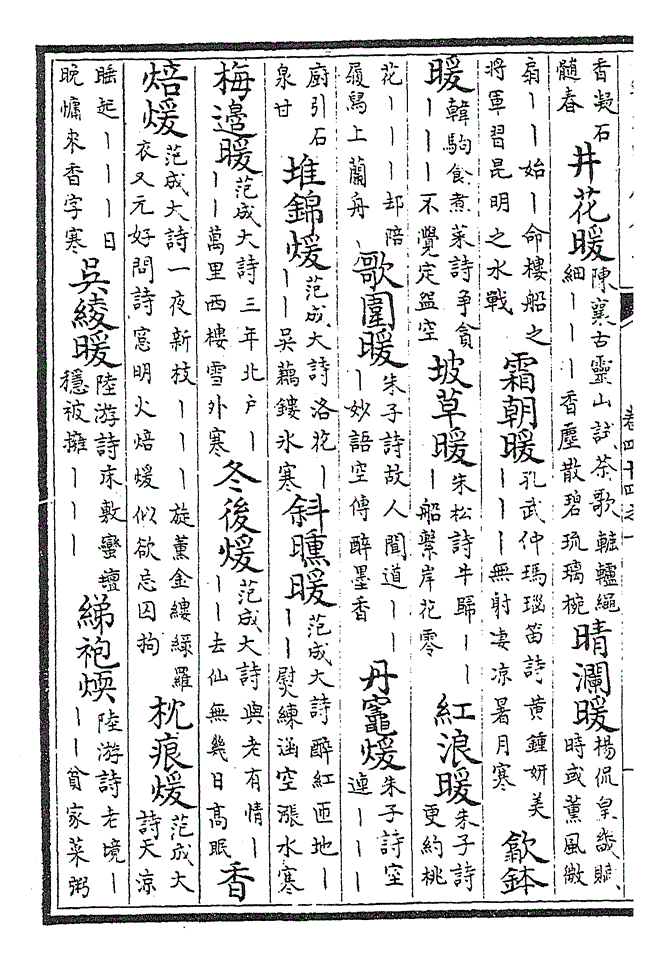 香凝石髓春 井花暖 陳襄古靈山試茶歌轆轤繩細｜｜｜香塵散碧琉璃椀 晴瀾暖 楊侃皇畿賦時或薰風微
扇｜｜始｜命樓船之將軍習昆明之水戰 霜朝暖 孔武仲瑪瑙笛詩黃鍾妍美｜｜｜無射凄凉暑月寒 歙鉢
暖 韓駒食煮菜詩爭貪｜｜｜不覺定盌空 坡草暖 朱松詩牛歸｜｜｜船繫岸花零 紅浪暖 朱子詩更約桃
花｜｜｜却陪屐舄上蘭舟 歌圍暖 朱子詩故人聞道｜｜｜妙語空傳醉墨香 丹竈煖 朱子詩空連｜｜｜
廚引石泉甘 堆錦煖 范成大詩洛花｜｜｜吳藕鏤氷寒 斜曛暖 范成大詩醉紅匝地｜｜｜熨練涵空漲水寒
梅邊暖 范成大詩三年北户｜｜｜萬里西樓雪外寒 冬後煖 范成大詩與老有情｜｜｜去仙無幾日高眠 香
焙煖 范成大詩一夜新枝｜｜｜旋薰金縷綠羅衣又元好問詩窻明火焙煖似欲忘囚拘 枕痕煖 范成大詩天凉
睡起｜｜｜日晚慵來香字寒 吳綾暖 陸游詩床敷蠻氊穩被擁｜｜｜ 綈袍煗 陸游詩老境｜｜｜貧家菜粥